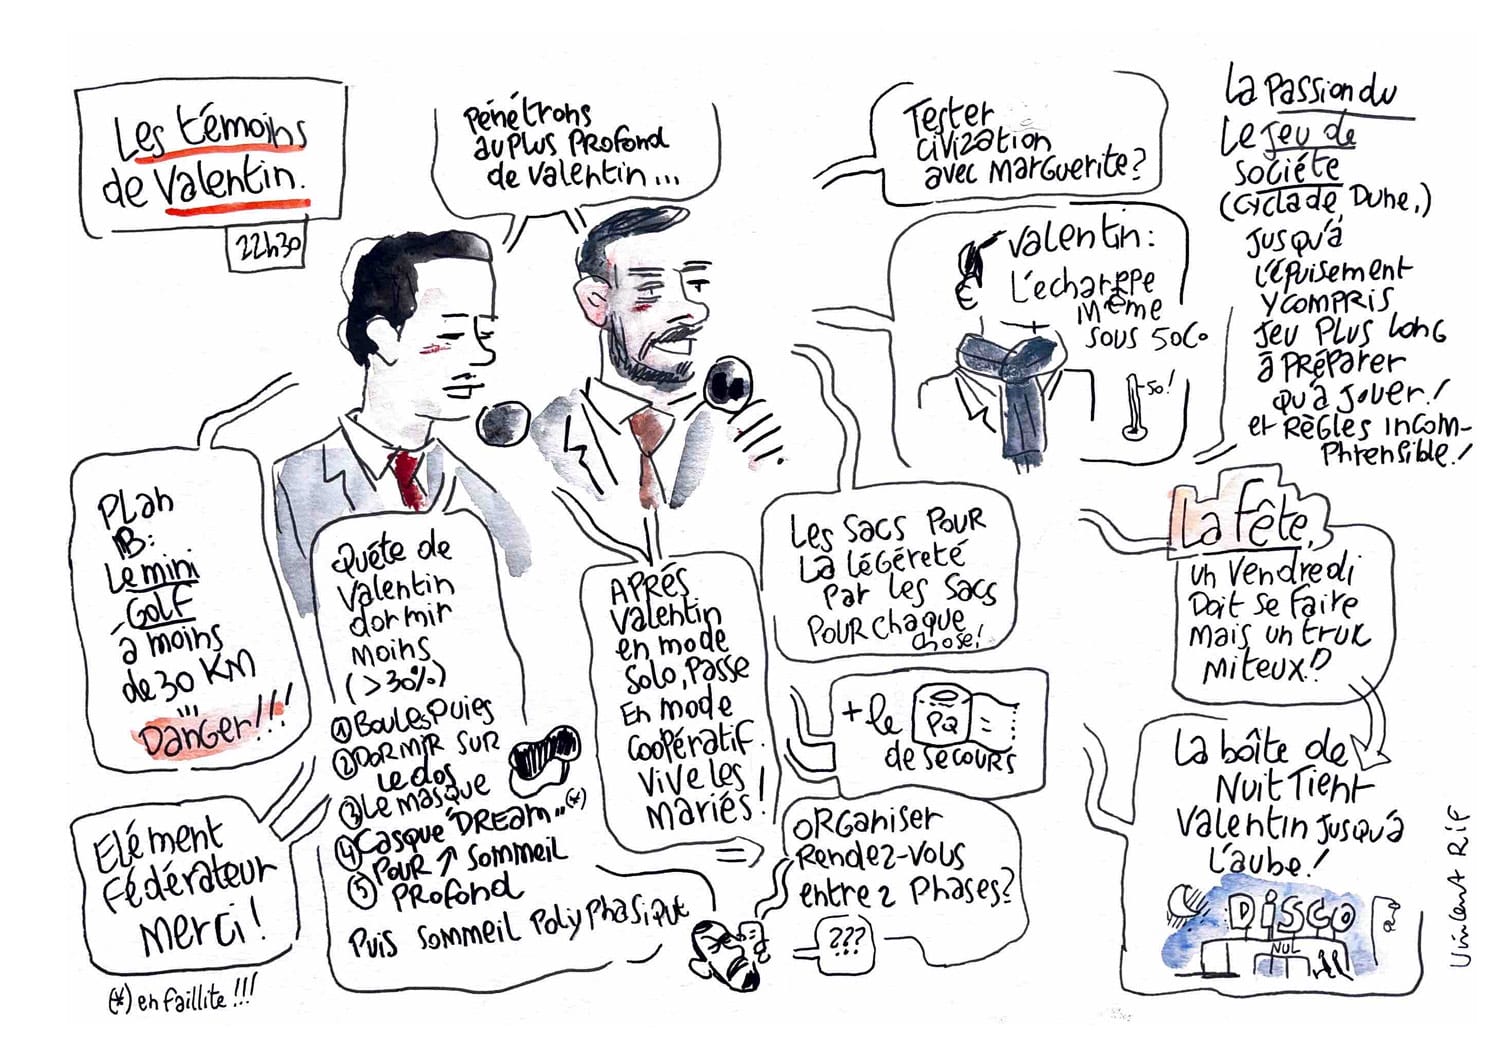 Les témoins
de Valentin.
22h30
Pénétrons
au plus profond
de Valentin...
Tester
civization
avec Marguerite?
Valentin:
L'echarppe
même
sous 50C°
-50!
La Passion du
Le jeu de
société
(Cyclade, Dune,)
jusqu'à
l'épuisement
y compris
jeu plus long
à préparer
qu'à jouer!
et règles incom-
phrensible!
Plan
B:
Le mini
Golf
à moins
de 30 KM
...
Danger!!!
Quéte de
Valentin
dormir
moins
(>30%)
① Boules Quies
② Dormir sur
le dos
③ Le masque
④ Casque "DREam" (*)
⑤ Pour ↗ sommeil
profond
Puis sommeil polyphasique
Elément
Fédérateur
Merci!
(*) en faillite!!!
Aprés
Valentin
en mode
solo, passe
en mode
coopératif.
Vive les
mariés!
Les sacs pour
la légéreté
par les sacs
pour chaque
chose!
+ le PQ
de secours
Organiser
rendez-vous
entre 2 phases?
???
La fête,
un vendredi
Doit se faire
mais un truk
miteux!?
La boîte de
nuit tient
Valentin jusqu'à
l'aube!
DISCO
NUL
Vincent Rif